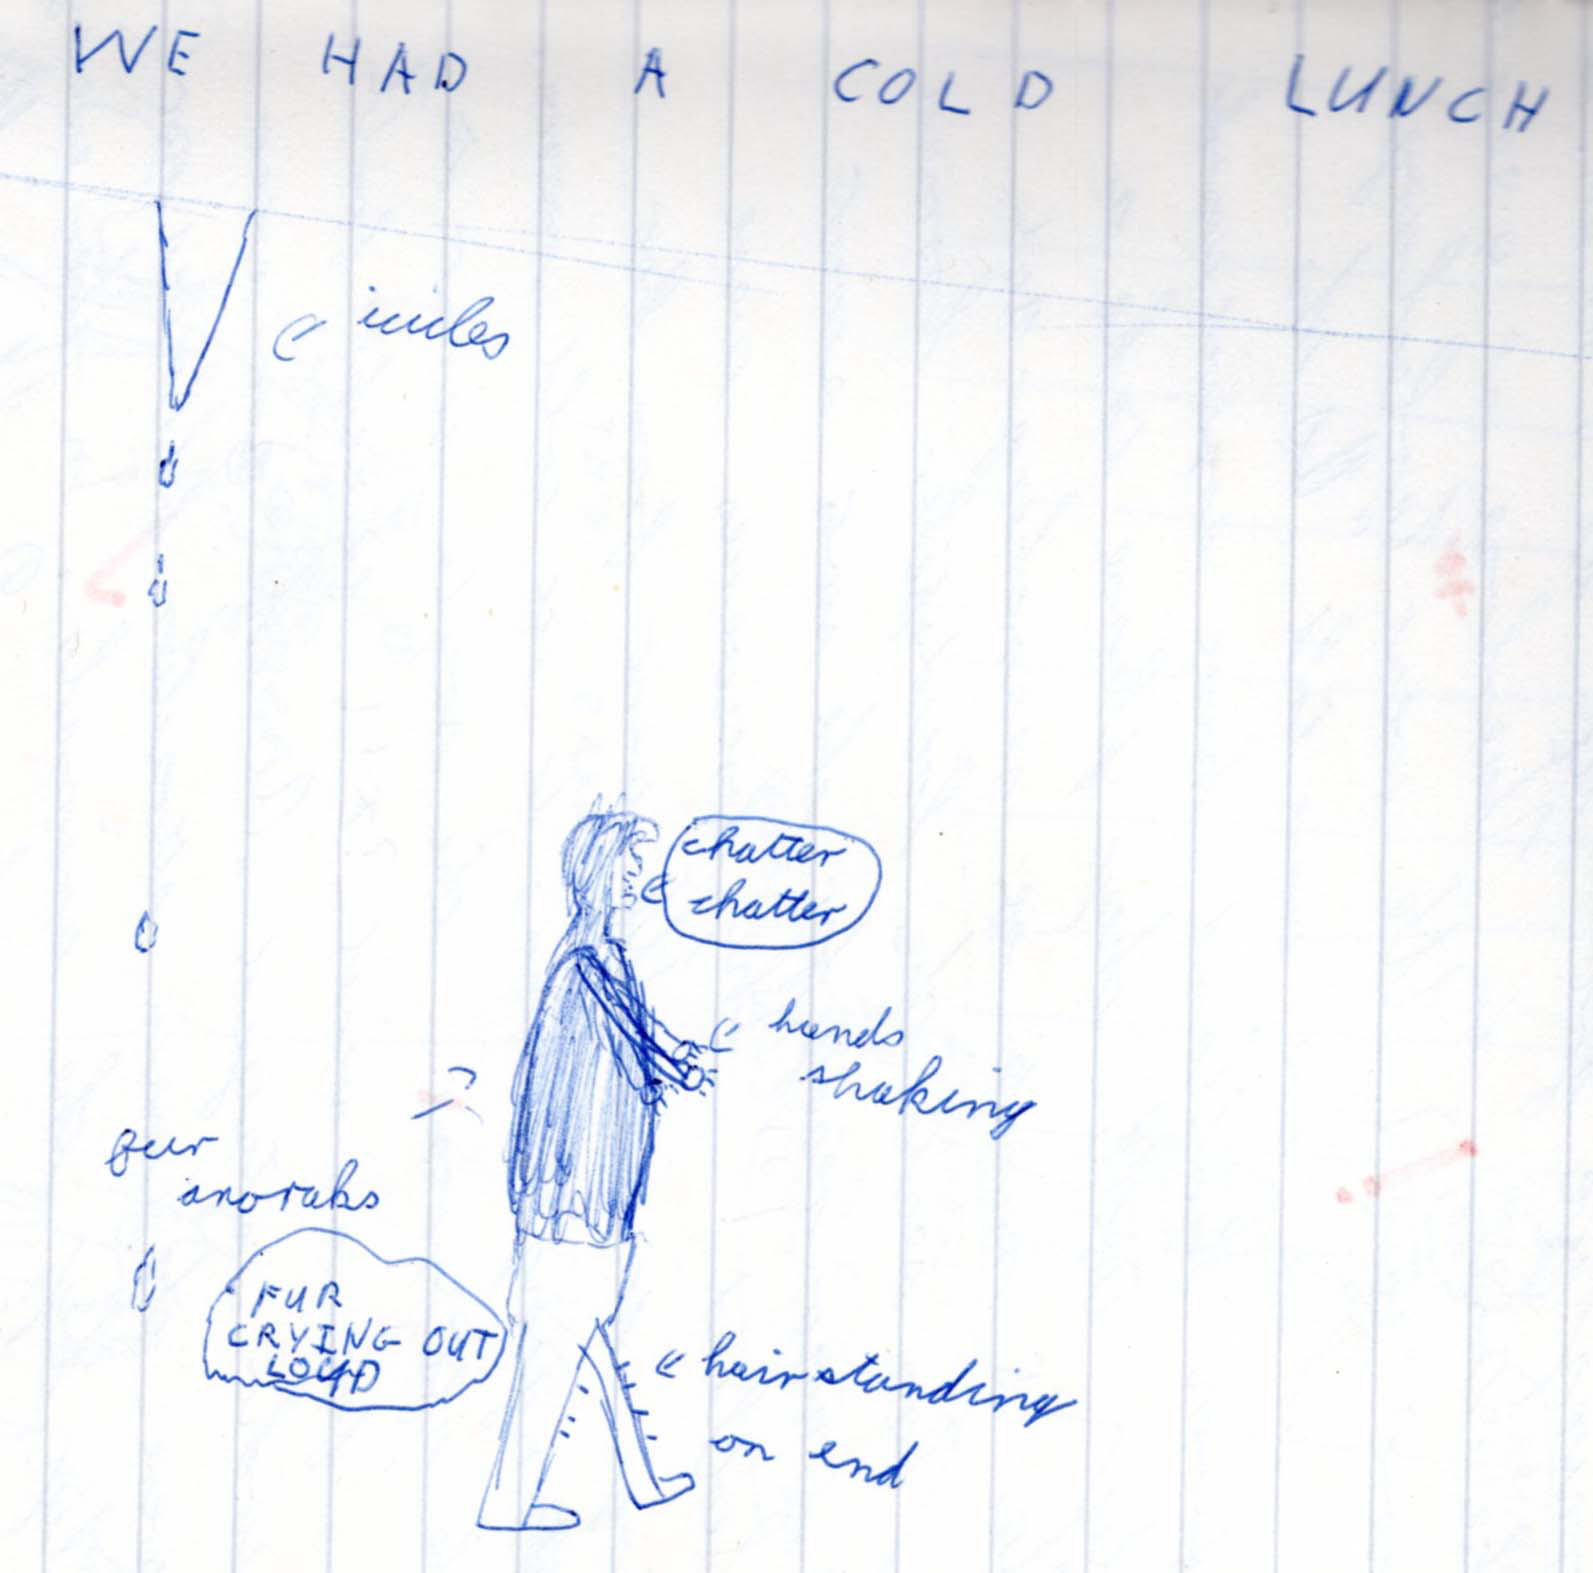 WE HAD A COLD LUNCH
icicles
chatter
chatter
hands
shaking
fur
anoraks
FUR
CRYING OUT
LOUD
hair standing
on end